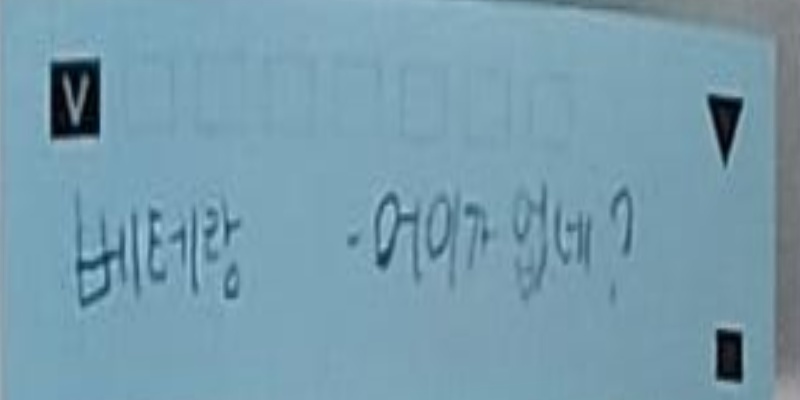 V
베테랑 - 어이가 없네?